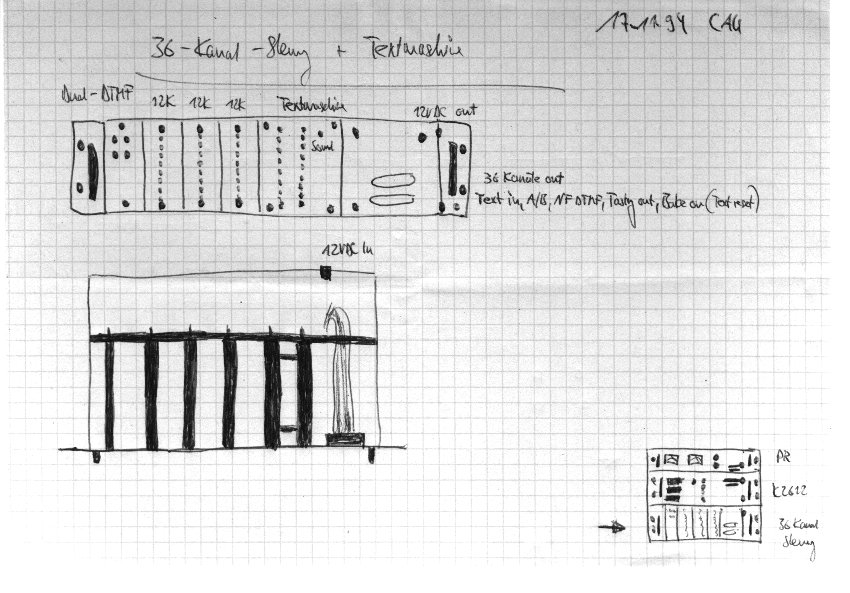 17.11.94 CAU
36-Kanal-Steug + Textmaschine
Dual-DTMF 12K 12K 12K Textmaschine 12VDC out
Sound
36 Kanäle out
Text in, A/B, NF DTMF, out, (Text reset)
12VDC In
K2612
36 Kanal
Steug